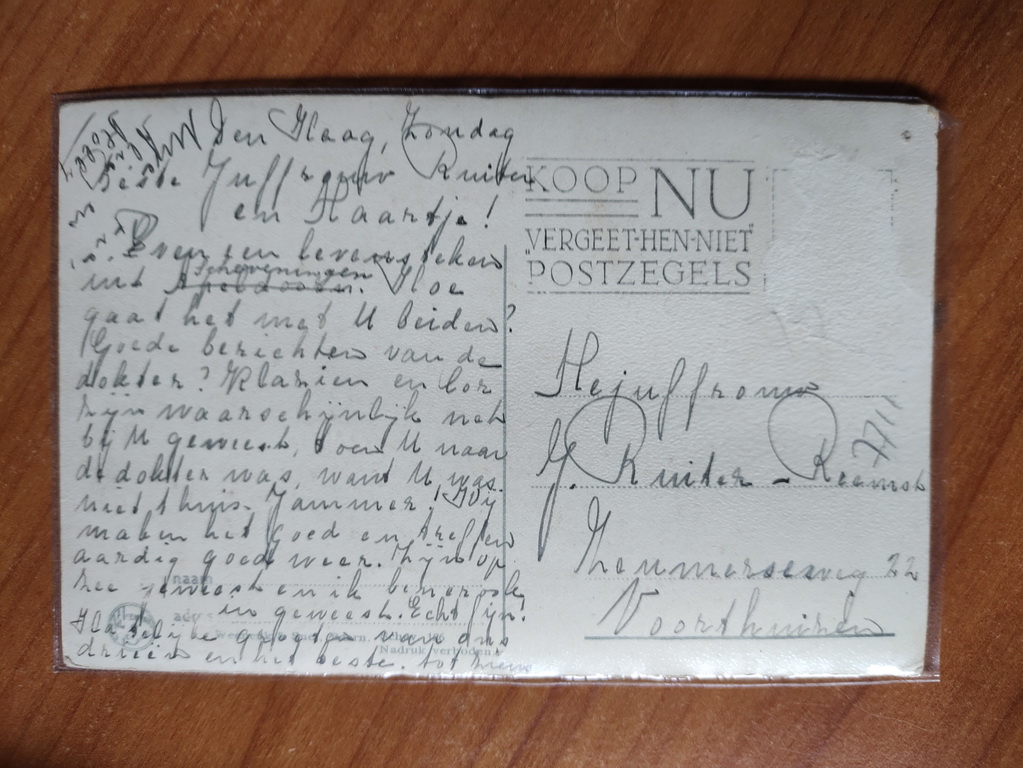 Den Haag, Zondag
Beste Juffrouw Ruiter
en Maartje!
Even een levensteken
uit Scheveningen
Apeldoorn. Hoe
gaat het met U beiden?
Goede berichten van de
dokter? Klazien en Cor
zijn waarschijnlijk net
bij U geweest, toen U naar
de dokter was, want U was
niet thuis. Jammer! Wij
maken het goed en treffen
aardig goed weer. Zijn op
zee geweest en ik ben
in geweest. Echt fijn!
Hartelijke groeten van ons
drieën en het beste. tot
naam
adres
Nadruk verboden
KOOP NU
"VERGEET-HEN-NIET"
POSTZEGELS
Mejuffrouw
J. Ruiter -
22
Voorthuizen